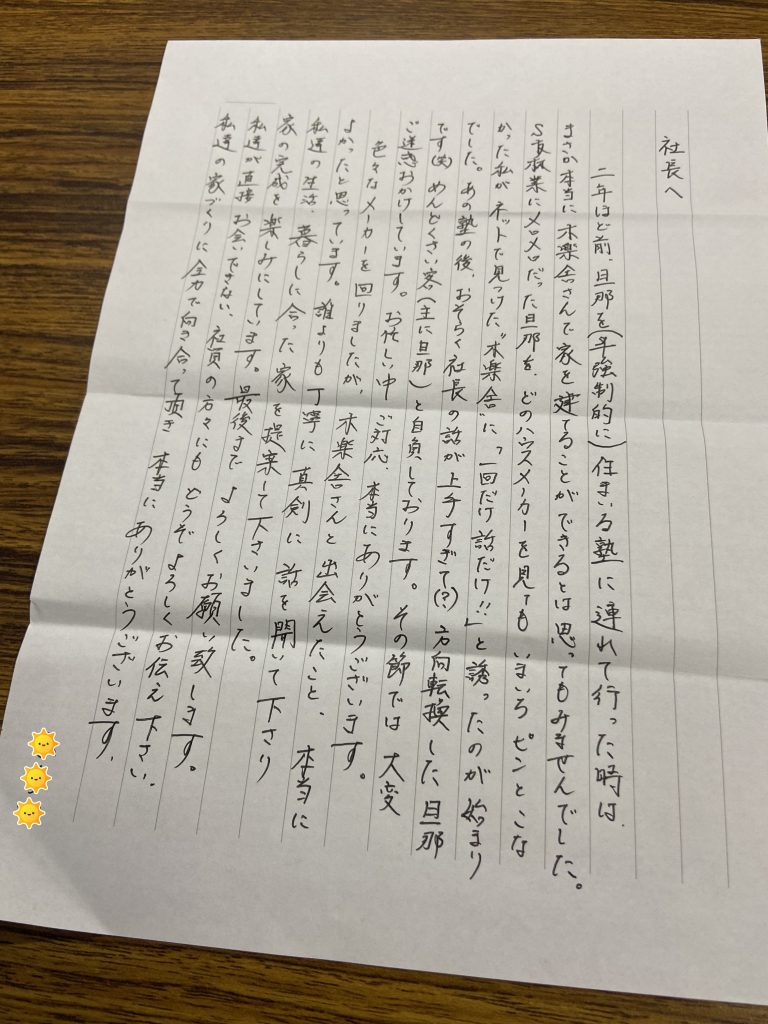 社長へ
二年ほど前、旦那を(半強制的に)住まいる塾に連れて行った時は、
まさか本当に木楽舎さんで家を建てることができるとは思ってもみませんでした。
メロメロだった旦那を、どのハウスメーカーを見ても いまいちピンとこな
かった私がネットで見つけた"木楽舎"に、「一回だけ話だけ!!」と誘ったのが始まり
でした。あの塾の後、おそらく社長の話が上手すぎて(?)方向転換した旦那
です(笑) めんどくさい客(主に旦那)と自負しております。その節では 大変
ご迷惑おかけしています。お忙しい中 ご対応、本当にありがとうございます。
色々なメーカーを回りましたが、木楽舎さんと出会えたこと、本当に
よかったと思っています。誰よりも丁寧に真剣に話を聞いて下さり
私達の生活、暮らしに合った家を提案して下さいました。
家の完成を楽しみにしています。最後まで よろしくお願い致します。
私達が直接お会いできない、社員の方々にも どうぞよろしくお伝え下さい。
私達の家づくりに全力で向き合って頂き 本当に ありがとうございます。